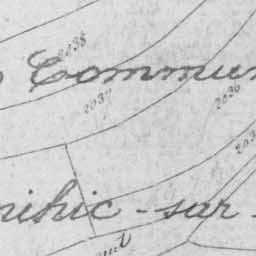 2038
Commun
2037
2036
203
nihic-sur-